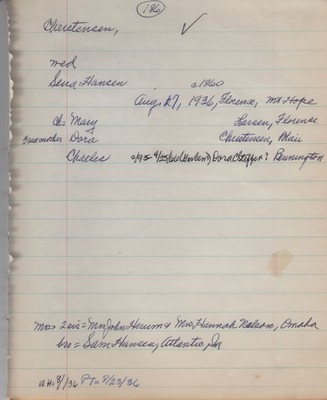 186
Christensen,
med
Sena Hansen a1860
Aug. 27, 1936, Florence, Mt Hope
Ch = Mary Larsen, Florence
Dora Christensen, Blair
Charles Dora Pennington
Mrs = 2 sis = Mrs John Herum & Mrs Hannah Nelson, Omaha
bro = Sam Hansen, Atlantic, Ia
WH = 9/1/36 PT = 8/28/36